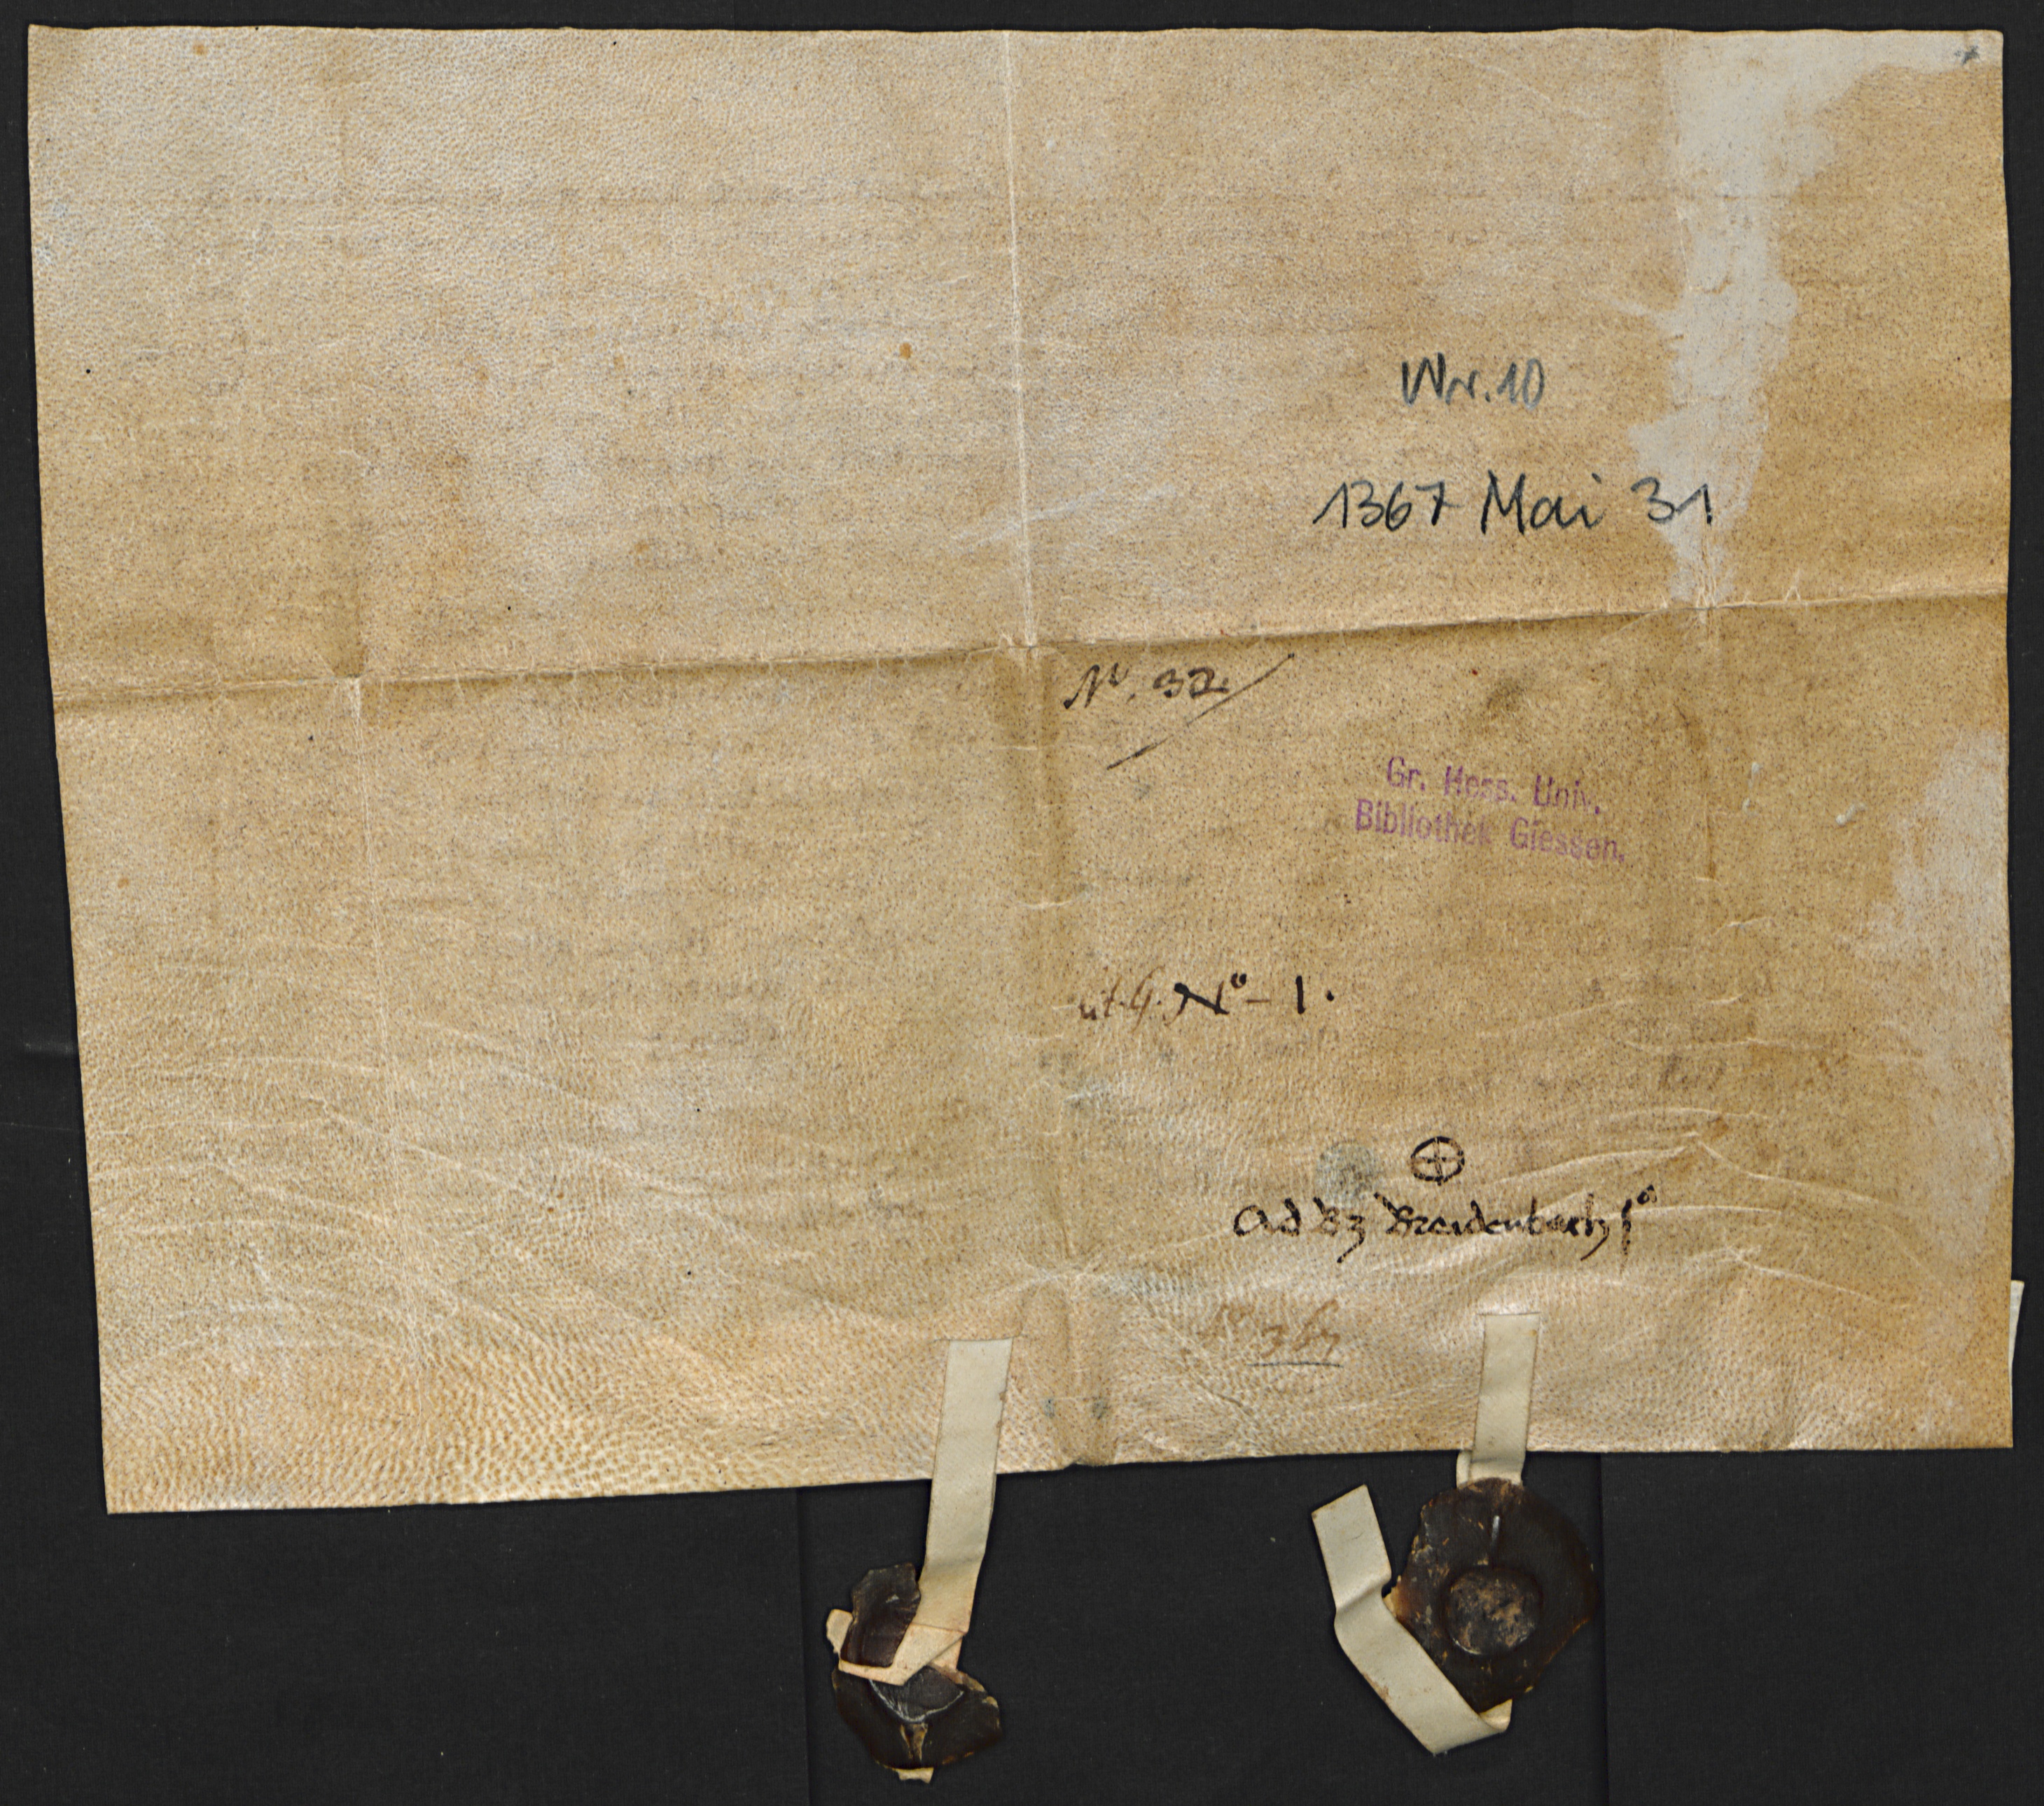 Nr. 10
1367 Mai 31
N. 32.
Gr. Hess. Univ.
Bibliothek Giessen.
Lit. G. No - 1.
ad Breidenbach
367